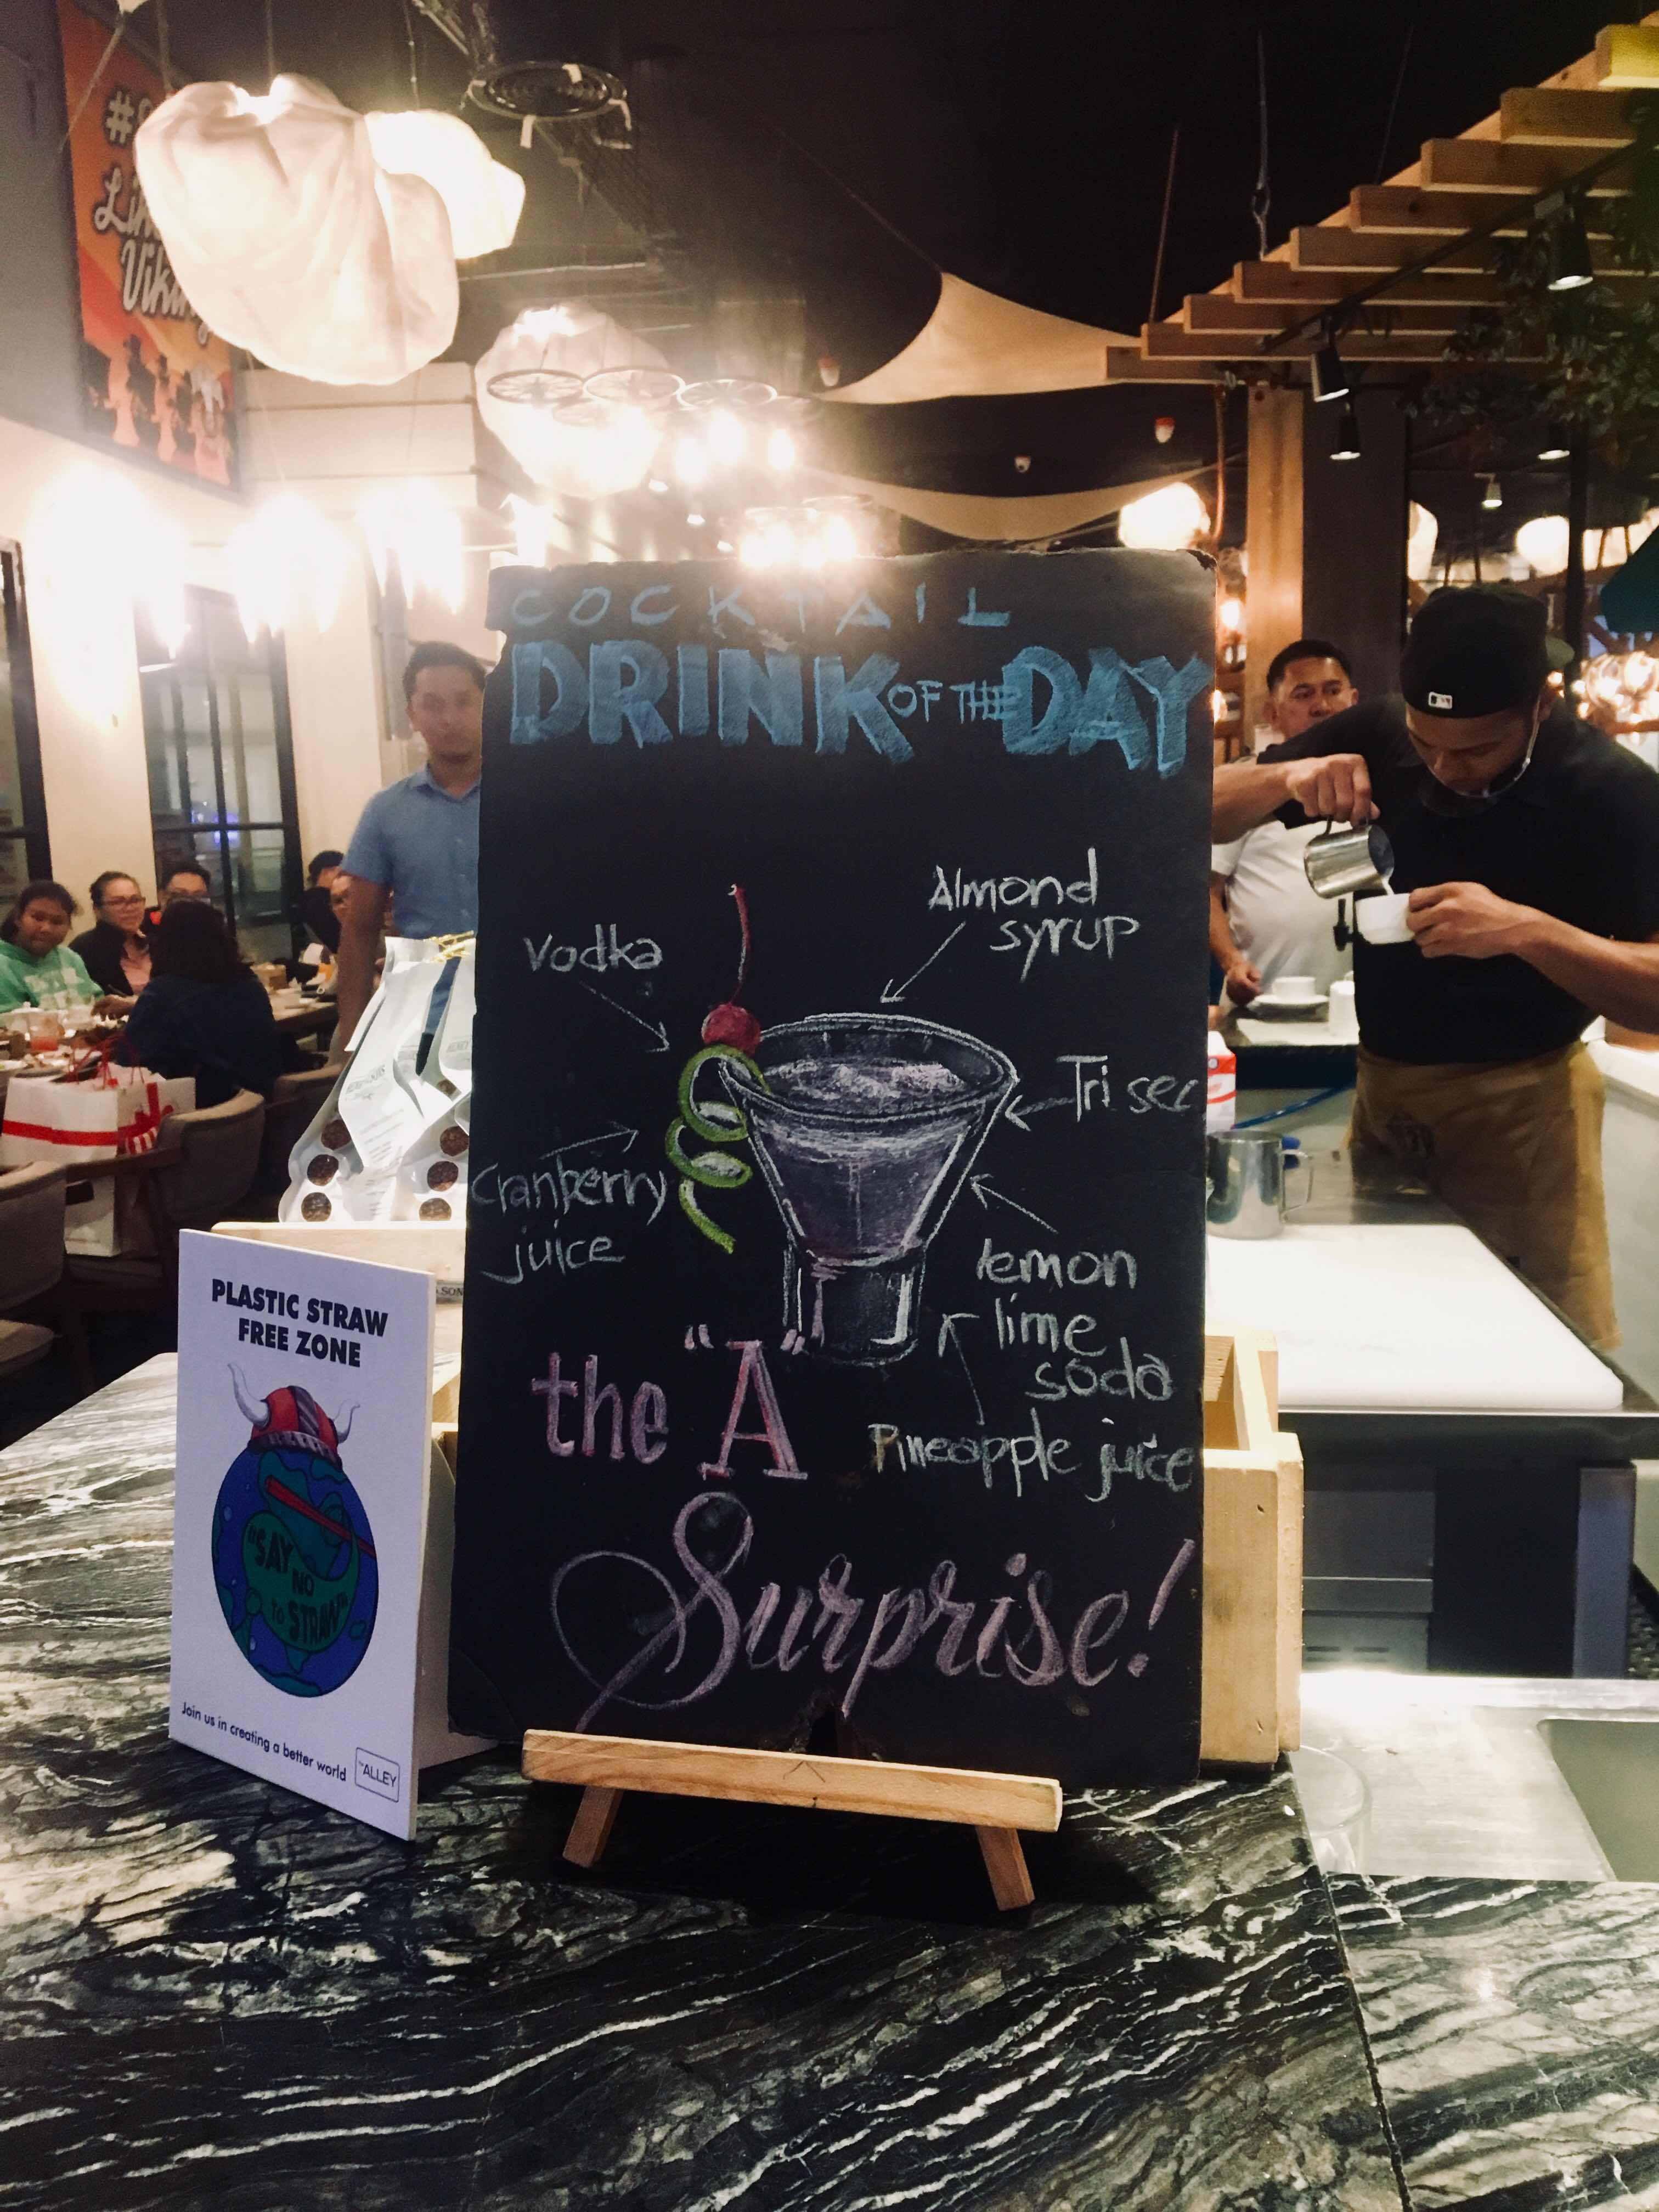 COCKTAIL
DRINK OF THE DAY
Almond
syrup
Vodka
Tri sec
Cranberry
juice
lemon
lime
soda
Pineapple juice
the "A"
Surprise!
PLASTIC STRAW
FREE ZONE
"SAY
NO
TO
STRAW"
Join us in creating a better world
ALLEY